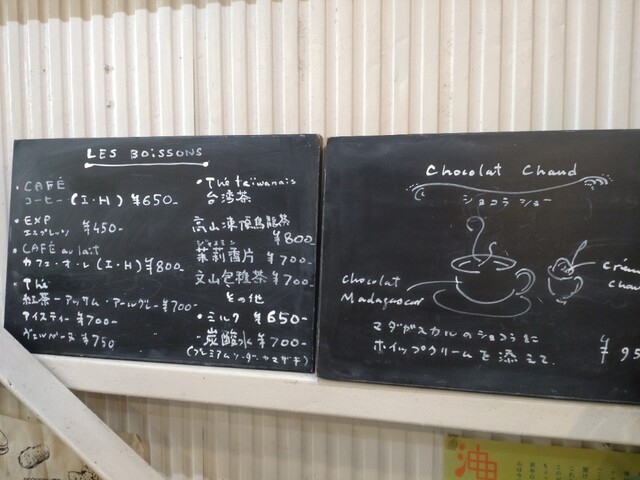 LES BOISSONS
・CAFÉ
コーヒー (I・H) ¥650-
・EXP
エスプレッソ ¥450-
・CAFÉ au lait
カフェ・オ・レ (I・H) ¥800-
・Thé
紅茶-アッサム・アールグレー-¥700-
アイスティー ¥700-
ヴェルベーヌ ¥750
・Thé taïwanais
台湾茶
高山凍頂烏龍茶
¥800-
ジャスミン
茉莉香片 ¥700-
文山包種茶 ¥700-
その他
・ミルク ¥650-
・炭酸水 ¥700-
(プレミアムソーダ・ヤマザキ)
Chocolat Chaud
ショコラ ショー
chocolat
Madagascar
マダガスカルのショコラに
ホイップクリームを添えて
油